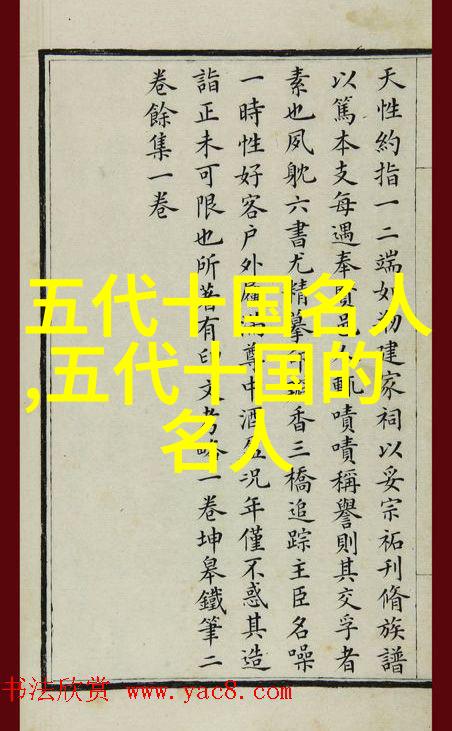 天性約指一二端如建家祠以妥宗祏刊脩族譜
以篤本支每遇奉輒嘖嘖稱譽則其交孚者
素也夙躭六書尤精摹香三橋追踪主臣名噪
一時性好客户外屨滿尊中酒盈况年僅不惑其造
詣正未可限也所著有印文考略一卷坤皋鐵筆二
卷餘集一卷
五代十国名人
,五代十国的
名人
书法欣赏 www.yac8.com